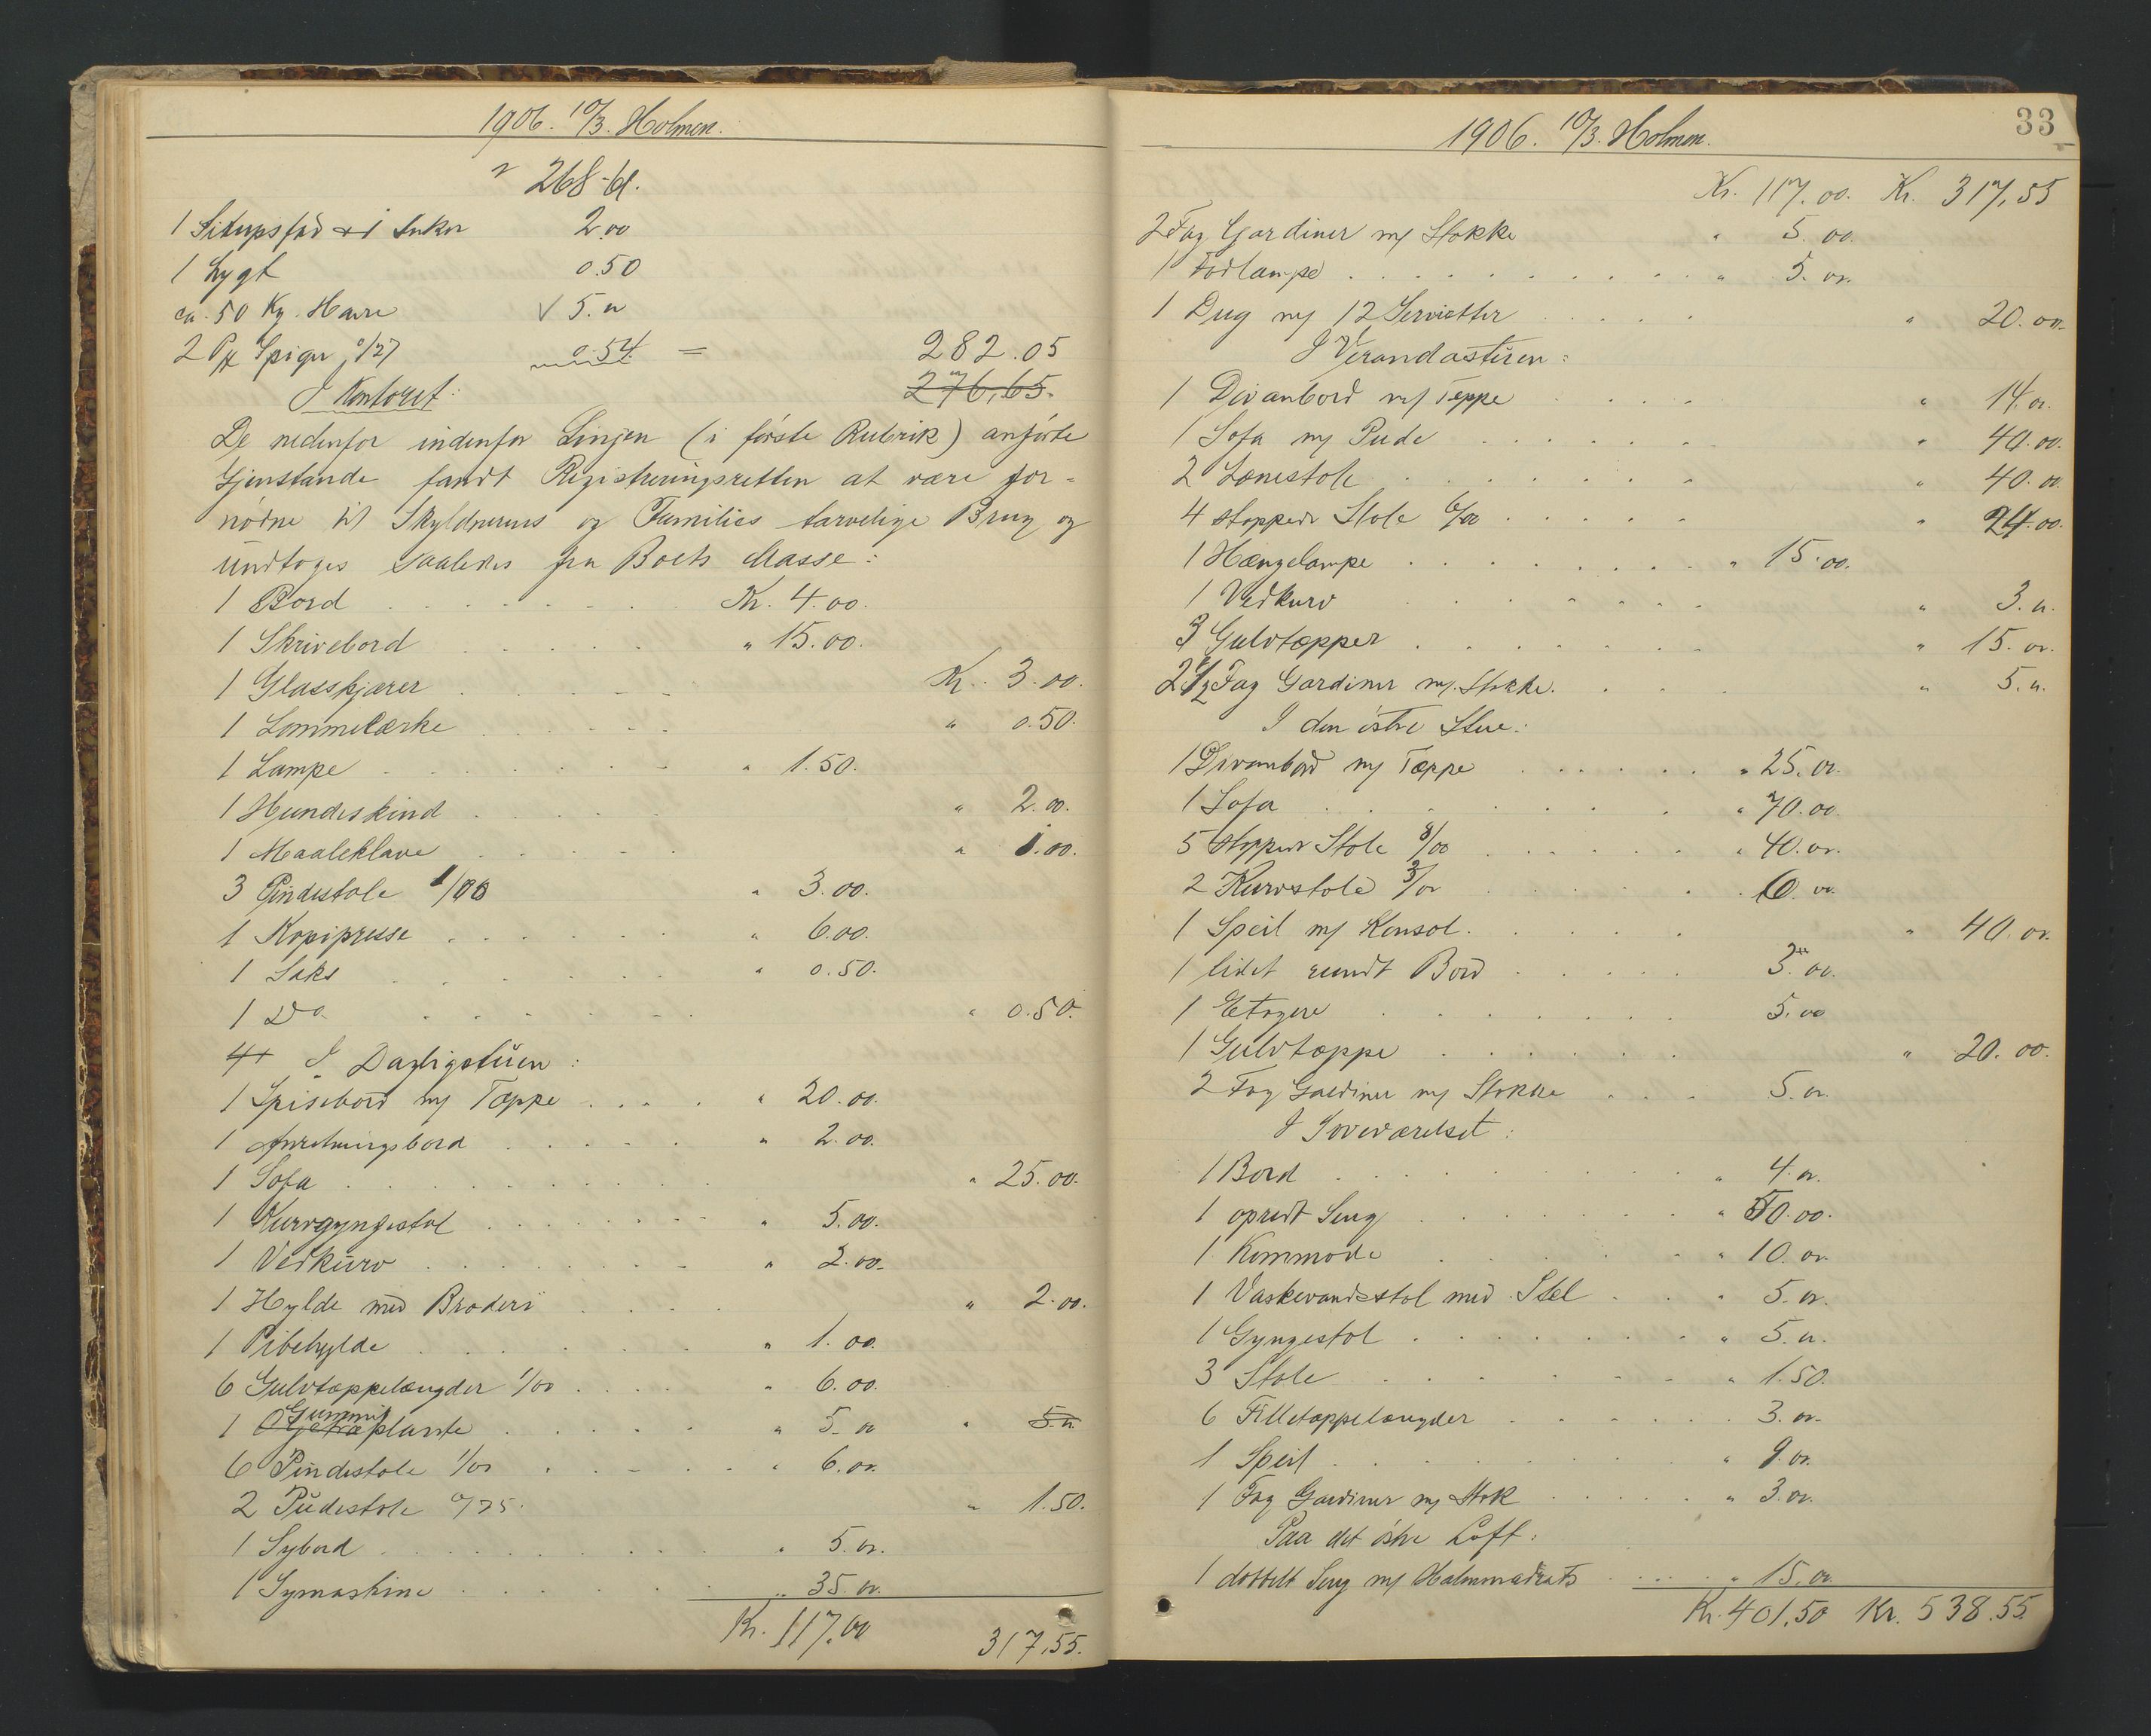 1906. 10/3. Holmen.
" 268-61.
1 Sirupsfad + i Sukr 2.00
1 Lygt 0.50
ca. 50 Kg. Havre √ 5. "
2 Pk Spiger 0/27 0.54 = 282.05
I Kontoret: 276,65.
De nedenfor indenfor Linjen (i første Rubrik) anførte
Gjenstande fandt Registreringsretten at være for-
nødne til Skyldnerens og Families tarvelige Brug og
undtoges saaledes fra Boets Masse:
1 Bord Kr. 4.00.
1 Skrivebord " 15.00.
1 Glasskjærer Kr. 3.00.
1 Lommelærke " 0.50.
1 Lampe " 1.50.
1 Hundeskind " 2.00.
1 Maaleklave " 1.00.
3 Pindestole 1/00 " 3.00.
1 Kopipresse " 6.00.
1 Saks " 0.50.
1 Do " 0.50.
I Dagligstuen:
1 Spisebord m/ Tæppe " 20.00.
1 Anretningsbord " 2.00.
1 Sofa " 25.00.
1 Kurvgyngestol " 5.00.
1 Vedkurv " 2.00.
1 Hylde med Broderi " 2.00.
1 Pibehylde " 1.00.
6 Gulvtæppelængder 1/00 " 6.00.
1 Gummiplante " 5. 00 " 5. "
6 Pindestole 1/00 " 6.00.
2 Pudestole 0/75. " 1.50.
1 Sybord " 5.00.
1 Symaskine " 35.00.
Kr. 117.00 317,55.
33
1906. 10/3. Holmen.
Kr. 117.00. Kr. 317,55
2 Fag Gardiner m/ Stokke " 5.00.
1 Fodlampe " 5.00.
1 Dug m/ 12 Servietter " 20.00.
I Verandastuen:
1 Divanbord m/ Teppe " 14.00.
1 Sofa m/ Pude " 40.00.
2 Lænestole " 40.00.
4 stoppede Stole 6/00 " 24.00.
1 Hængelampe " 15.00.
1 Vedkurv " 3. "
3 Gulvtæpper " 15.00.
2 1/2 Fag Gardiner m/ Stokke. " 5. "
I den østre Stue:
1 Divanbord m/ Tæppe " 25.00.
1 Sofa " 70.00.
5 stoppede Stole 8/00 " 40.00.
2 Kurvstole 3/00 " 6.00.
1 Speil m/ Konsol. " 40.00.
1 lidet rundt Bord 3.00.
1 Etagere 5.00
1 Gulvtæppe " 20.00.
2 Fag Gardiner m/ Stokke 5.00.
I Soveværelset:
1 Bord " 4.00.
1 opredt Seng " 50.00.
1 Kommode " 10.00.
1 Vaskevandsstol med Stel " 5.00.
1 Gyngestol " 5.00.
3 Stole " 1.50.
6 Filletæppelængder " 3.00.
1 Speil " 9.00.
1 Fag Gardiner m/ Stok " 3.00.
Paa det østre Loft:
1 dobbelt Seng m/ Halmmadrats " 15.00.
Kr. 401,50 Kr. 538.55.